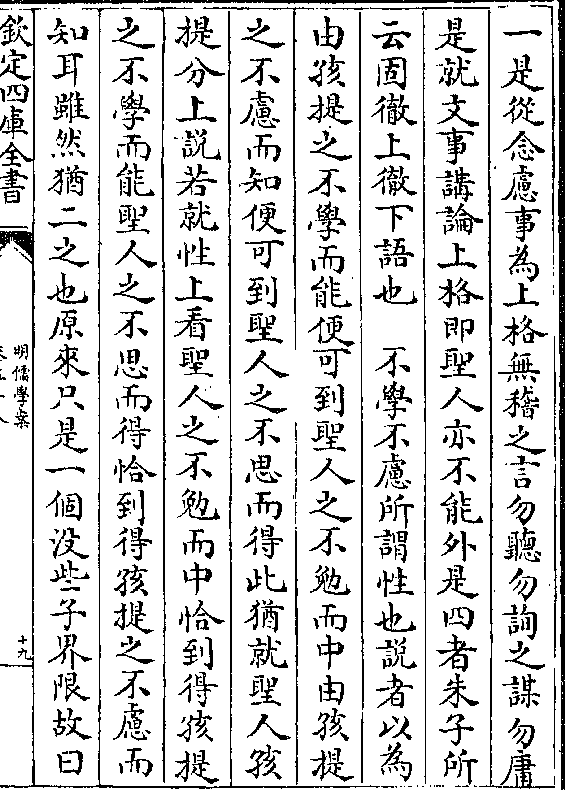 一是從念慮事為上格無稽之言勿聽勿詢之謀勿庸
是就文事講論上格即聖人亦不能外是四者朱子所
云固徹上徹下語也　不學不慮所謂性也説者以為
由孩提之不學而能便可到聖人之不勉而中由孩提
之不慮而知便可到聖人之不思而得此猶就聖人孩
提分上説若就性上看聖人之不勉而中恰到得孩提
之不學而能聖人之不思而得恰到得孩提之不慮而
知耳雖然猶二之也原來只是一個没些子界限故曰
欽定四庫全書
明儒學案
十九